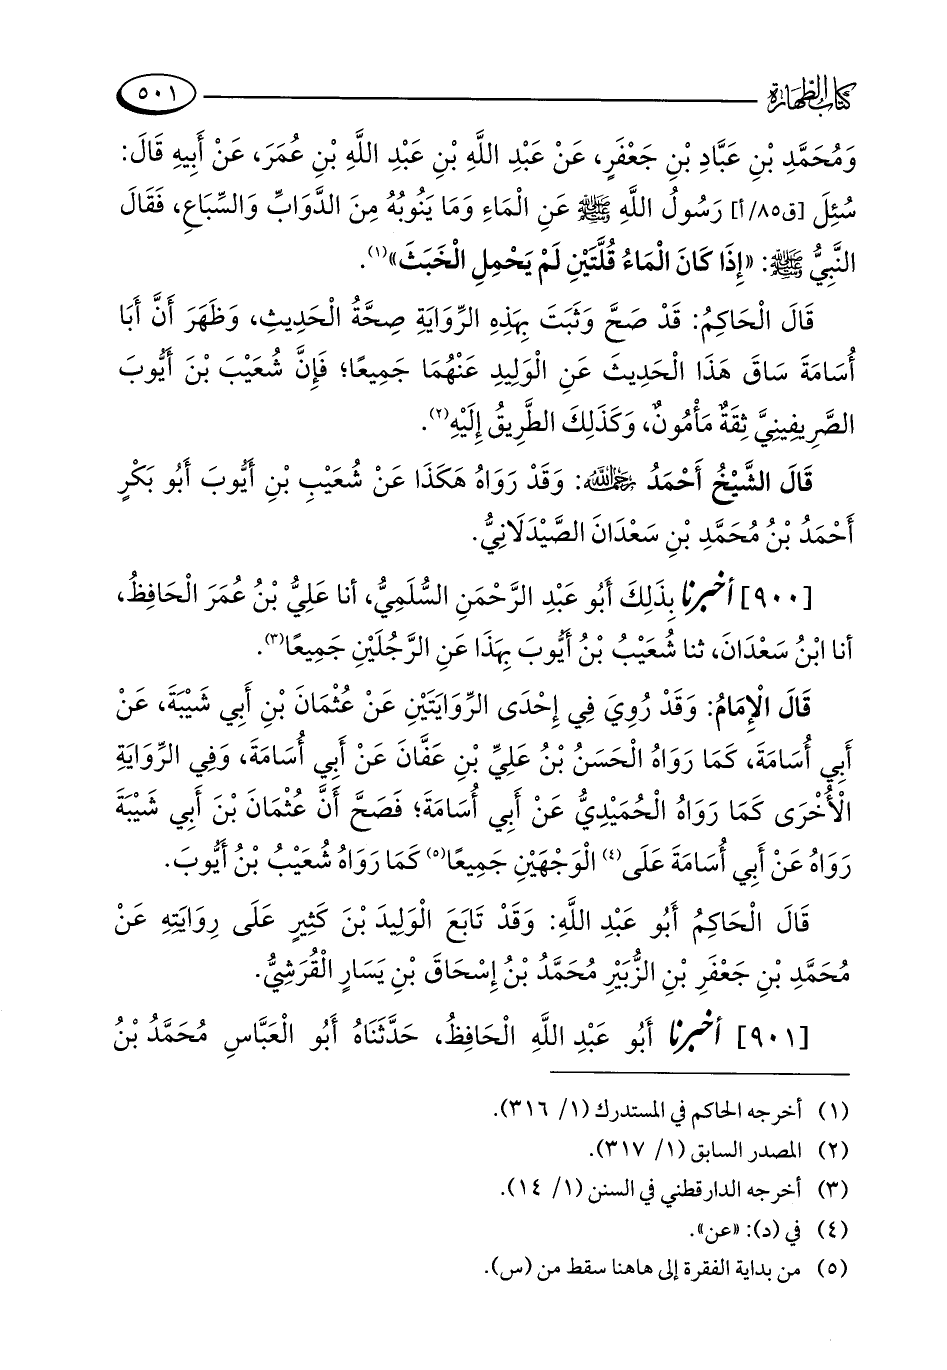 كتاب الطهارة ٥٠١
وَمُحَمَّدِ بْنِ عَبَّادِ بْنِ جَعْفَرٍ، عَنْ عَبْدِ اللَّهِ بْنِ عَبْدِ اللَّهِ بْنِ عُمَرَ، عَنْ أَبِيهِ قَالَ:
سُئِلَ [ق٨٥/أ] رَسُولُ اللَّهِ ﷺ عَنِ الْمَاءِ وَمَا يَنُوبُهُ مِنَ الدَّوَابِّ وَالسِّبَاعِ، فَقَالَ
النَّبِيُّ ﷺ: «إِذَا كَانَ الْمَاءُ قُلَّتَيْنِ لَمْ يَحْمِلِ الْخَبَثَ»(١).
قَالَ الْحَاكِمُ: قَدْ صَحَّ وَثَبَتَ بِهَذِهِ الرِّوَايَةِ صِحَّةُ الْحَدِيثِ، وَظَهَرَ أَنَّ أَبَا
أُسَامَةَ سَاقَ هَذَا الْحَدِيثَ عَنِ الْوَلِيدِ عَنْهُمَا جَمِيعًا؛ فَإِنَّ شُعَيْبَ بْنَ أَيُّوبَ
الصَّرِيفِينِيَّ ثِقَةٌ مَأْمُونٌ، وَكَذَلِكَ الطَّرِيقُ إِلَيْهِ(٢).
قَالَ الشَّيْخُ أَحْمَدُ رحمه الله: وَقَدْ رَوَاهُ هَكَذَا عَنْ شُعَيْبِ بْنِ أَيُّوبَ أَبُو بَكْرٍ
أَحْمَدُ بْنُ مُحَمَّدِ بْنِ سَعْدَانَ الصَّيْدَلَانِيُّ.
[٩٠٠] أخبرنا بِذَلِكَ أَبُو عَبْدِ الرَّحْمَنِ السُّلَمِيُّ، أنا عَلِيُّ بْنُ عُمَرَ الْحَافِظُ،
أنا ابْنُ سَعْدَانَ، ثنا شُعَيْبُ بْنُ أَيُّوبَ بِهَذَا عَنِ الرَّجُلَيْنِ جَمِيعًا(٣).
قَالَ الْإِمَامُ: وَقَدْ رُوِيَ فِي إِحْدَى الرِّوَايَتَيْنِ عَنْ عُثْمَانَ بْنِ أَبِي شَيْبَةَ، عَنْ
أَبِي أُسَامَةَ، كَمَا رَوَاهُ الْحَسَنُ بْنُ عَلِيِّ بْنِ عَفَّانَ عَنْ أَبِي أُسَامَةَ، وَفِي الرِّوَايَةِ
الْأُخْرَى كَمَا رَوَاهُ الْحُمَيْدِيُّ عَنْ أَبِي أُسَامَةَ؛ فَصَحَّ أَنَّ عُثْمَانَ بْنَ أَبِي شَيْبَةَ
رَوَاهُ عَنْ أَبِي أُسَامَةَ عَلَى(٤) الْوَجْهَيْنِ جَمِيعًا(٥) كَمَا رَوَاهُ شُعَيْبُ بْنُ أَيُّوبَ.
قَالَ الْحَاكِمُ أَبُو عَبْدِ اللَّهِ: وَقَدْ تَابَعَ الْوَلِيدَ بْنَ كَثِيرٍ عَلَى رِوَايَتِهِ عَنْ
مُحَمَّدِ بْنِ جَعْفَرِ بْنِ الزُّبَيْرِ مُحَمَّدُ بْنُ إِسْحَاقَ بْنِ يَسَارٍ الْقُرَشِيُّ.
[٩٠١] أخبرنا أَبُو عَبْدِ اللَّهِ الْحَافِظُ، حَدَّثَنَاهُ أَبُو الْعَبَّاسِ مُحَمَّدُ بْنُ
(١) أخرجه الحاكم في المستدرك (١/ ٣١٦).
(٢) المصدر السابق (١/ ٣١٧).
(٣) أخرجه الدارقطني في السنن (١/ ١٤).
(٤) في (د): «عن».
(٥) من بداية الفقرة إلى هاهنا سقط من (س).